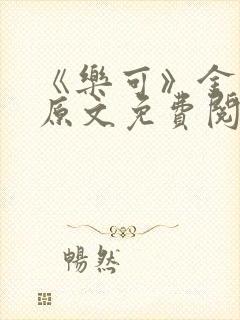 《樂可》金
原文免費閱
暢然